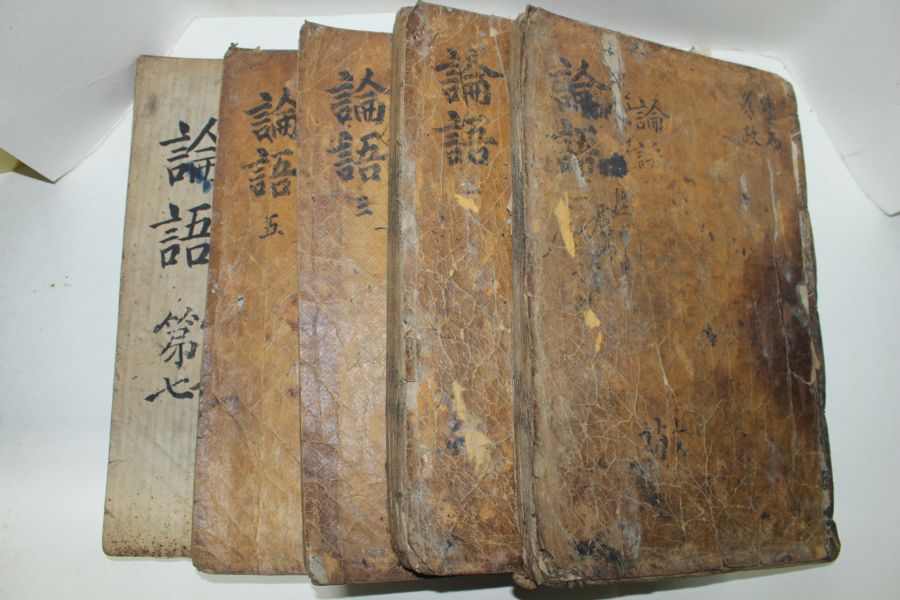 論語
第七
論語
五
論語
三
論語
二
論語
論語